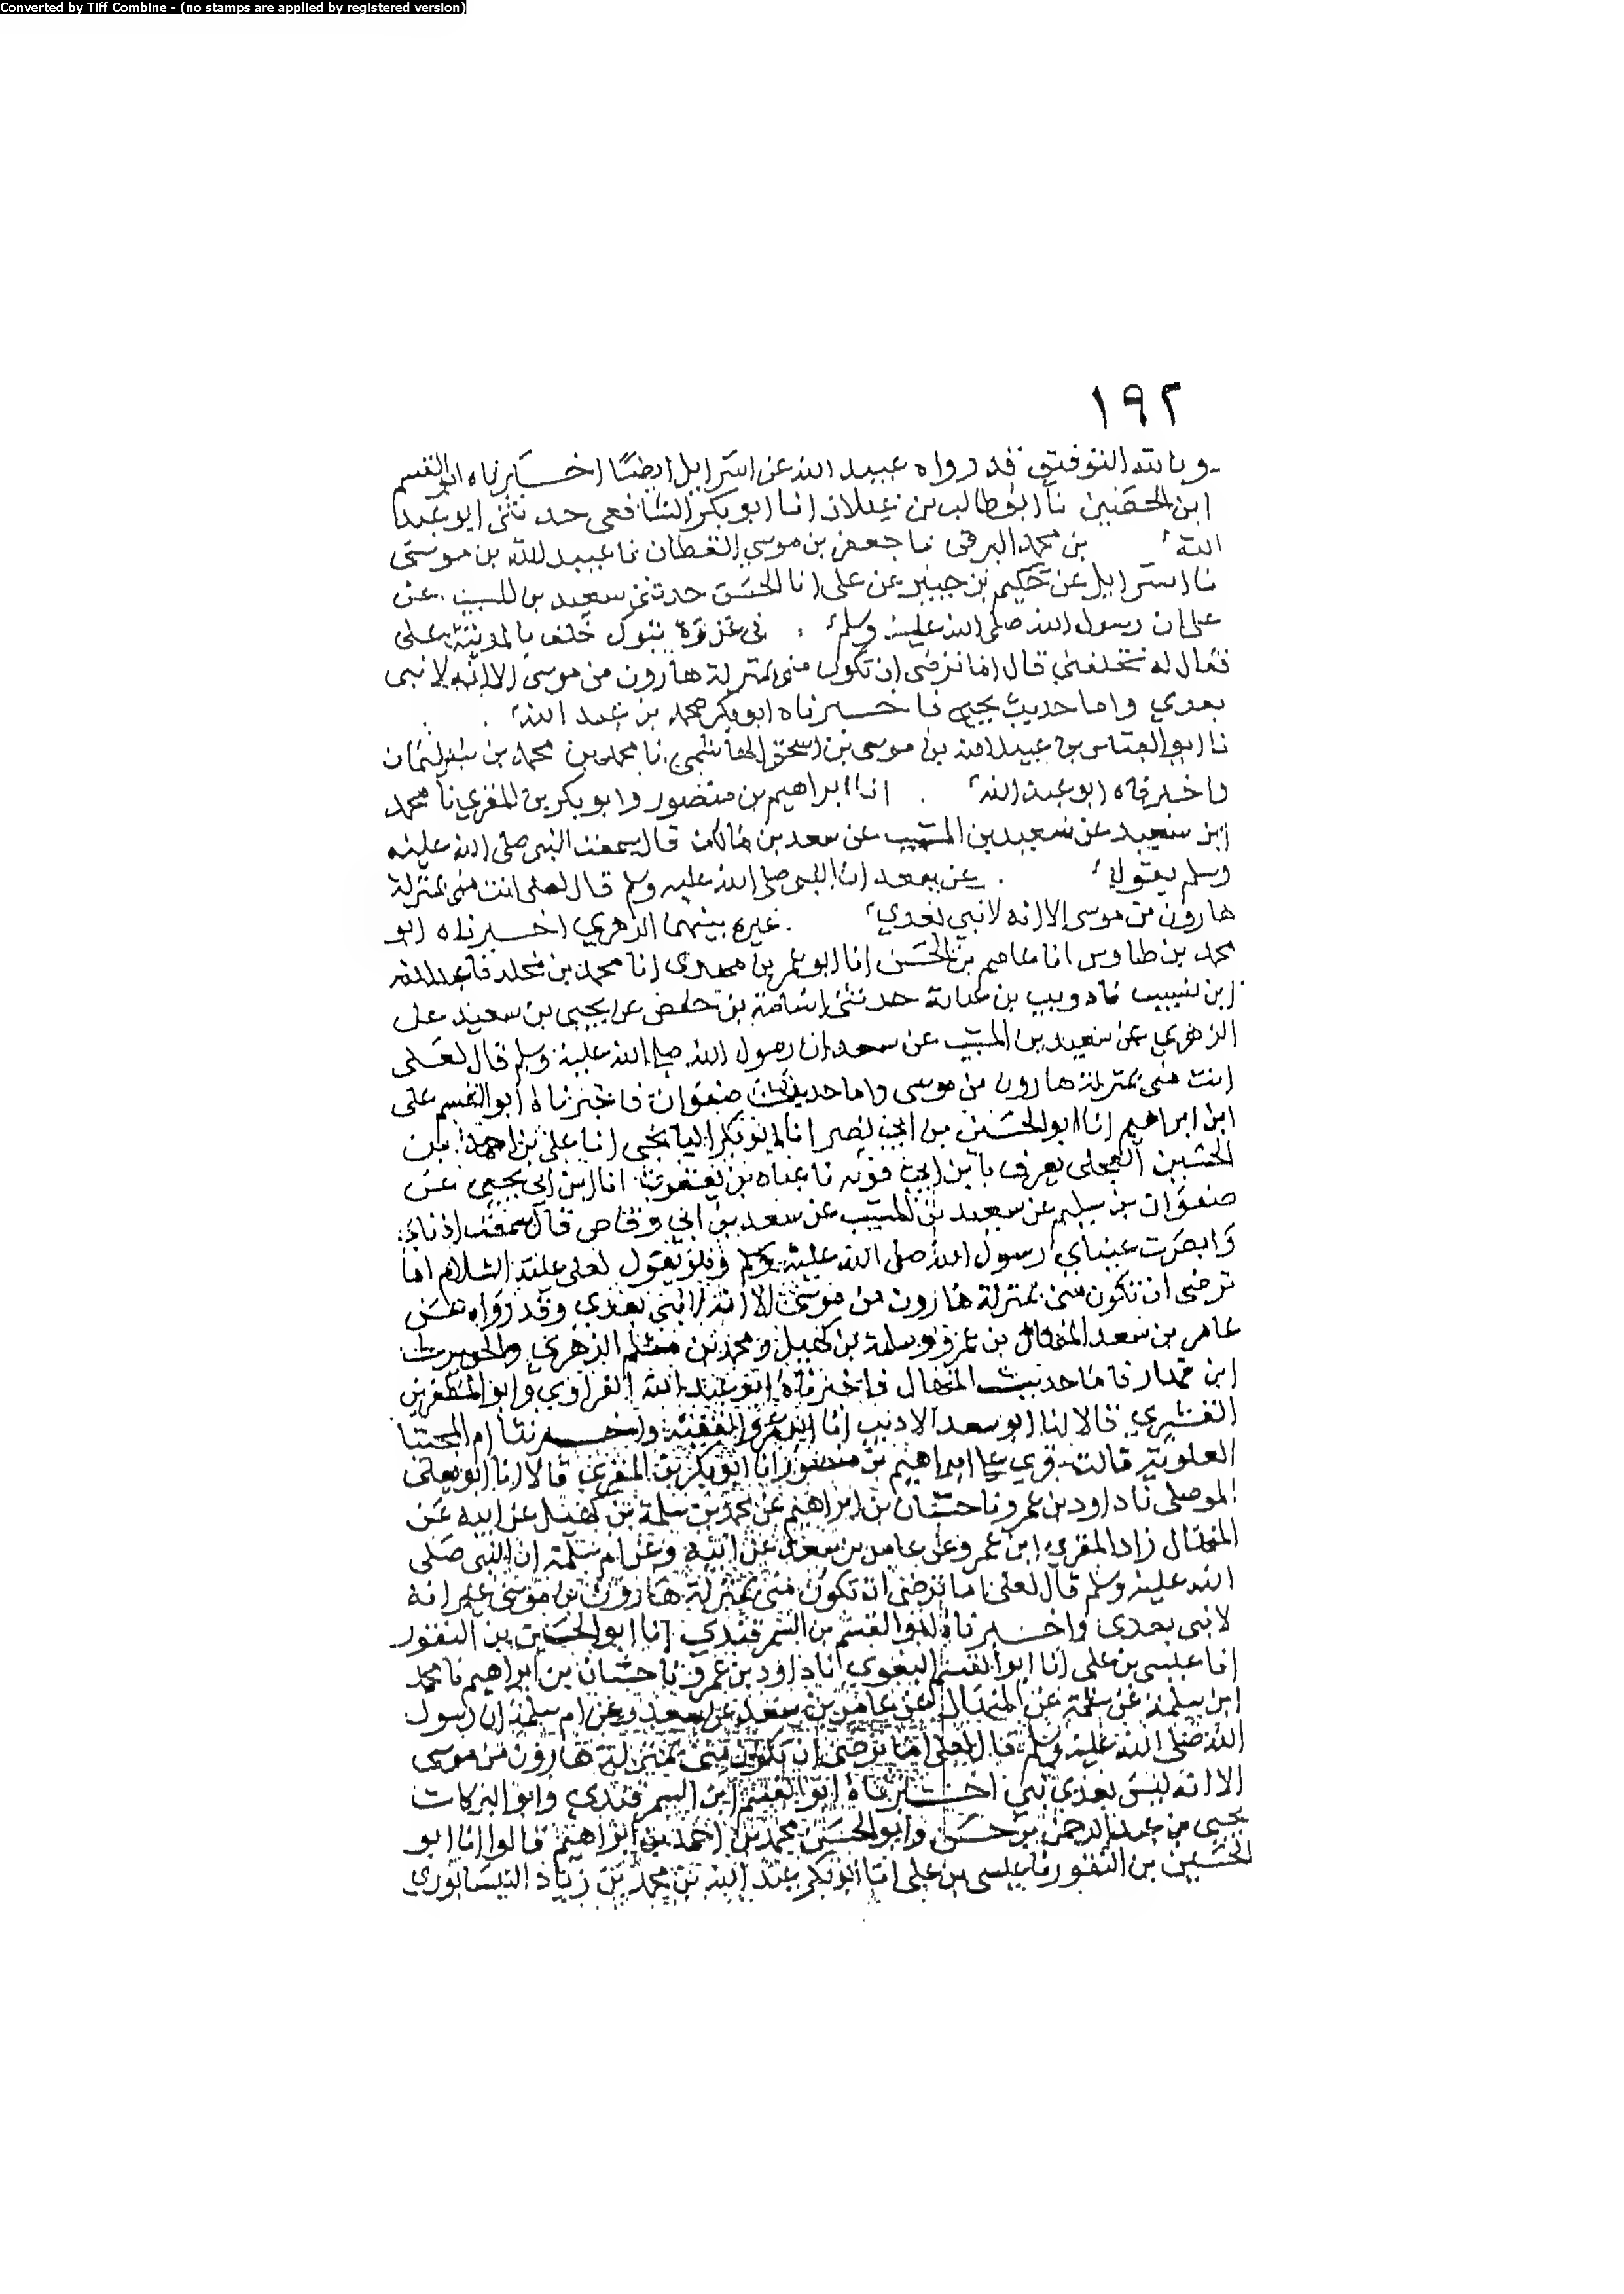 Converted by Tiff Combine - (no stamps are applied by registered version)
١٩٢
وبالله التوفيق قد رواه عبيد الله عن اسرايل ايضا اخبرناه ابو القسم
ابن الحصين نا ابو طالب بن غيلان انا ابو بكر الشافعى حدثنى ابو عبد
الله بن محمد البرقى نا جعفر بن موسى القطان نا عبيد الله بن موسى
نا اسرايل عن حكيم بن جبير عن على انا الحسن حدثنى سعيد بن المسيب عن
على ان رسول الله صلى الله عليه وسلم فى غزوة تبوك خلف بالمدينة على
فقال له تخلفنى قال اما ترضى ان تكون منى بمنزلة هارون من موسى الا انه لا نبى
بعدي واما حديث يحيى فاخبرناه ابو بكر محمد بن عبد الله
نا ابو العباس بن عبيد الله بن موسى بن اسحق الهاشمى نا محمد بن محمد بن سليمان
واخبرناه ابو عبد الله انا ابراهيم بن منصور وابو بكر بن المقري نا محمد
ابن سعيد عن سعيد بن المسيب عن سعد بن مالك قال سمعت النبى صلى الله عليه
وسلم يقول عن سعد ان النبى صلى الله عليه وسلم قال لعلى انت منى بمنزلة
هارون من موسى الا انه لا نبي بعدي غيره بينهما الزهري اخبرناه ابو
محمد بن طاوس انا عاصم بن الحسن انا ابو عمر بن مهدى انا محمد بن مخلد نا عبد الله
ابن شبيب نا دويب بن عمامة حدثنى اسامة بن حفص عن يحيى بن سعيد عن
الزهري عن سعيد بن المسيب عن سعد ان رسول الله صلى الله عليه وسلم قال لعلى
انت منى بمنزلة هارون من موسى واما حديث صفوان فاخبرناه ابو القسم على
ابن ابراهيم انا ابو الحسين بن ابى نصر انا ابو بكر الميانجى انا على بن احمد بن
الحسين العجلى يعرف بابن ابى قربه نا عباد بن يعقوب انا ابن ابى يحيى عن
صفوان بن سليم عن سعيد بن المسيب عن سعد بن ابي وقاص قال سمعت اذناي
وابصرت عيناي رسول الله صلى الله عليه وسلم وهو يقول لعلى عليه السلام اما
ترضى ان تكون منى بمنزلة هارون من موسى الا انه لا نبى بعدي وقد رواه عن
عامر بن سعد المنهال بن عمرو وسلمة بن كهيل ومحمد بن مسلم الزهري والحويرث
ابن فاما حديث المنهال فاخبرناه ابو عبد الله الفراوي وابو المظفر بن
القشيري قالا لنا ابو سعد الاديب انا ابو عمرو الفقيه واخبرتنا ام المجتبا
العلوية قالت قري على ابراهيم بن منصور انا ابو بكر بن المقري قالا انا ابو يعلى
الموصلى نا داود بن عمرو نا حسان بن ابراهيم عن محمد بن سلمة بن كهيل عن ابيه عن
المنهال زاد المقري ابن عمرو عن عامر بن سعد عن ابيه وعن ام سلمة ان النبى صلى
الله عليه وسلم قال لعلى اما ترضى ان تكون منى بمنزلة هارون من موسى غير انه
لا نبى بعدى واخبرناه ابو القسم بن السمرقندي انا ابو الحسين بن النقور
انا عيسى بن على انا ابو القسم البغوي نا داود بن عمرو نا حسان بن ابراهيم نا محمد
ابن سلمة عن سلمة عن المنهال عن عامر بن سعد عن سعد وعن ام سلمة ان رسول
الله صلى الله عليه وسلم قال لعلى اما ترضى ان تكون منى بمنزلة هارون من موسى
الا انه ليس بعدي نبي اخبرناه ابو القسم ابن السمرقندي وابو البركات
يحيى بن عبد الرحمن بن حسن وابو الحسن محمد بن احمد بن ابراهيم قالوا انا ابو
الحسين بن النقور نا عيسى بن على انا ابو بكر عبد الله بن محمد بن زياد النيسابوري